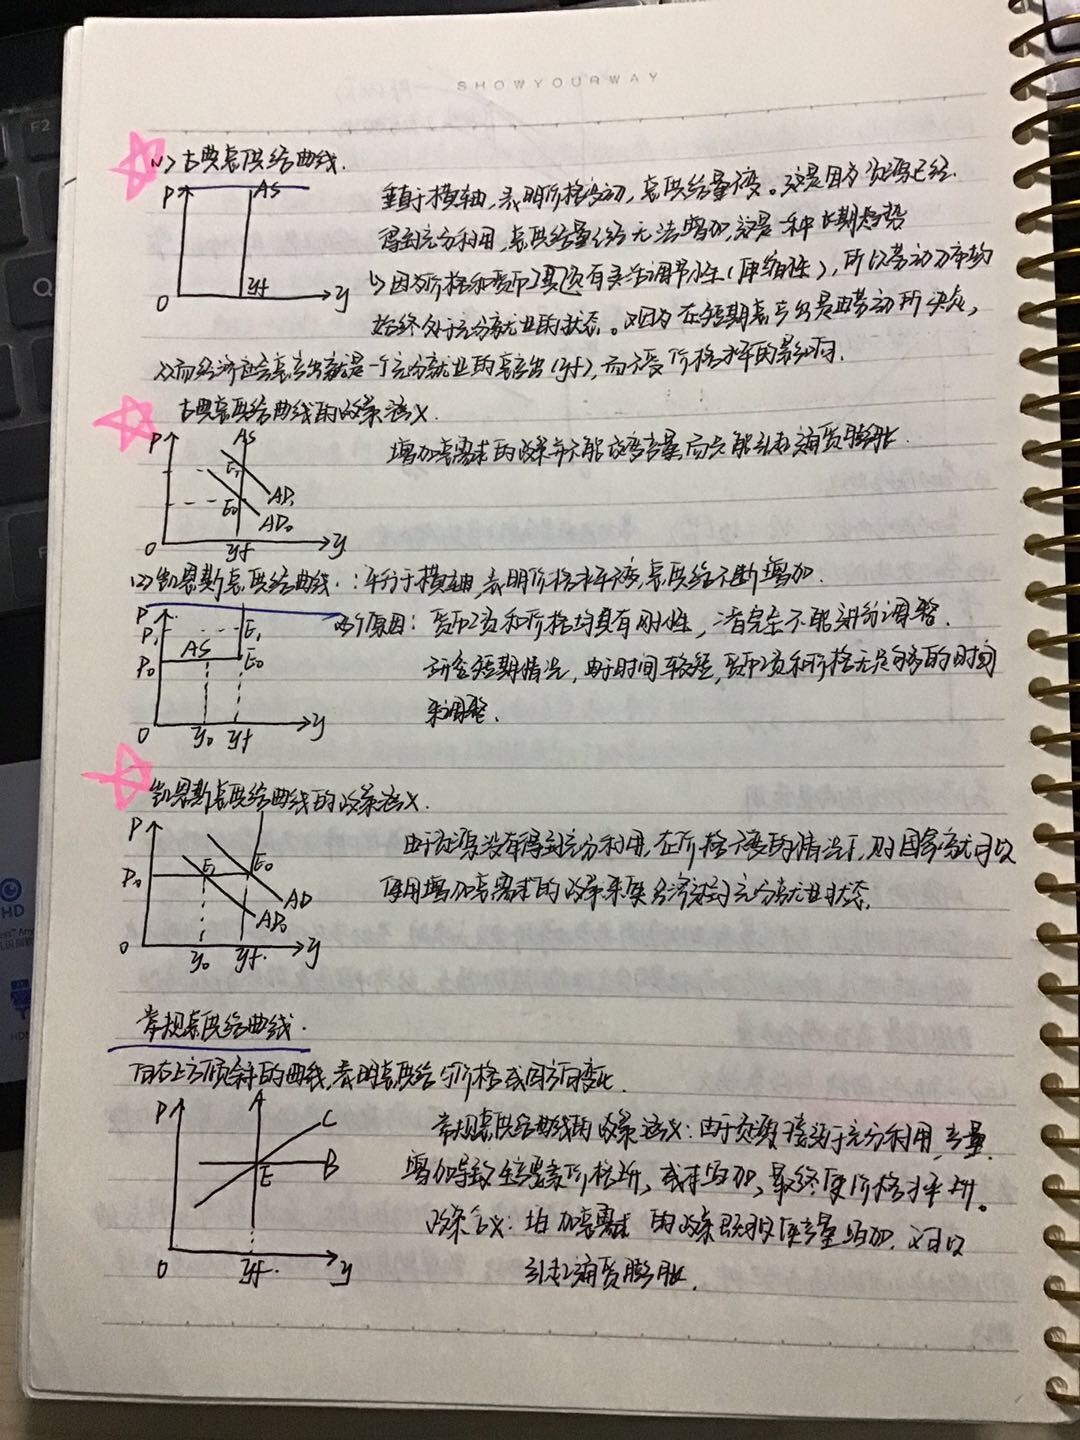 SHOWYOURWAY
(1)古典总供给曲线.
P AS
垂直于横轴,表明价格变动,总供给量不变。这是因为资源已经
得到充分利用,总供给量已经无法增加,这是一种长期趋势
yf O y
因为价格和货币工资有灵活调节性(伸缩性),所以劳动力市场
始终处于充分就业的状态。又因为在短期总产出是由劳动所决定,
而经济社会总产出就是一个充分就业的总产出(yf),而不受价格水平的影响.
古典总供给曲线的政策含义
P AS E1 E0 AD1 AD0 O yf y
增加总需求的政策并不能改变产量,而只能引起通货膨胀.
(2)凯恩斯总供给曲线:平行于横轴,表明价格水平不变,总供给不断增加.
P P1 AS P0 E1 E0 O y0 yf y
原因:货币工资和价格均具有刚性,二者完全不能进行调整.
研究短期情况,由于时间较短,货币工资和价格无足够多的时间
来调整.
凯恩斯总供给曲线的政策含义.
P P0 E1 E0 AD AD0 O y0 yf. y
由于资源没有得到充分利用,在价格不变的情况下,则国家就可以
使用增加总需求的政策来使经济达到充分就业状态.
常规总供给曲线.
向右上方倾斜的曲线,表明总供给与价格成同方向变化.
P A C B E O yf. y
常规总供给曲线的政策含义:由于资源接近于充分利用,产量
增加导致生产要素价格上升,成本增加,最终使价格水平上升。
政策含义:增加总需求的政策既可以使产量增加,又可以
引起通货膨胀.